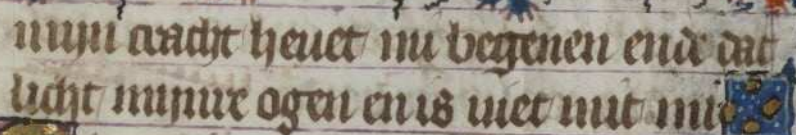 mijn cracht heuet mi begeuen ende dat
licht mijnre ogen en is niet mit mi